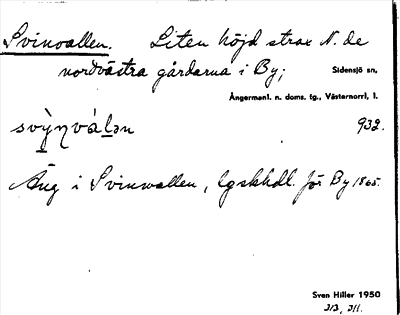 Svinvallen. Liten höjd strax N. de
nordvästra gårdarna i By;
Sidensjö sn,
Ångermanl. n. doms. tg., Västernorrl, l.
932.
Äng i Svinvallen, lgskhdl. för By 1865.
Sven Hiller 1950